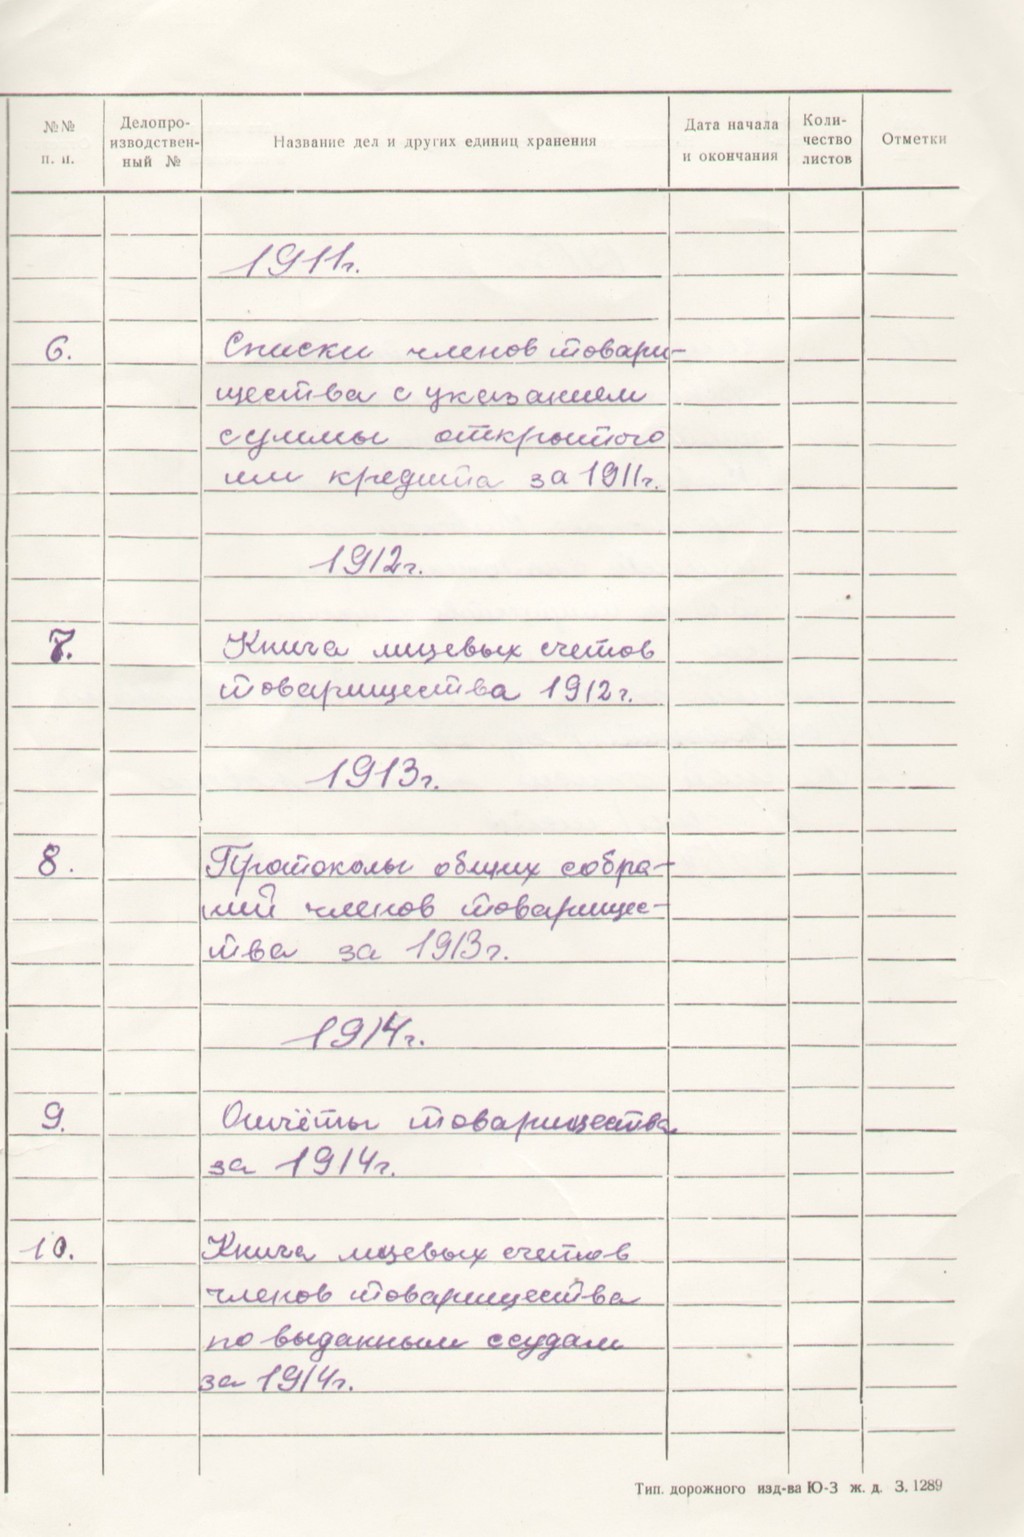 №№
п. п.
Делопро-
изводствен-
ный №
Название дел и других единиц хранения
Дата начала
и окончания
Коли-
чество
листов
Отметки
1911г.
6. Списки членов товари-
щества с указанием
суммы открытого
им кредита за 1911г.
1912г.
7. Книга лицевых счетов
товарищества 1912г.
1913г.
8. Протоколы общих собра-
ний членов товарищес-
тва за 1913г.
1914г.
9. Отчёты товарищества
за 1914г.
10. Книга лицевых счетов
членов товарищества
по выданным ссудам
за 1914г.
Тип. дорожного изд-ва Ю-З ж. д. З. 1289